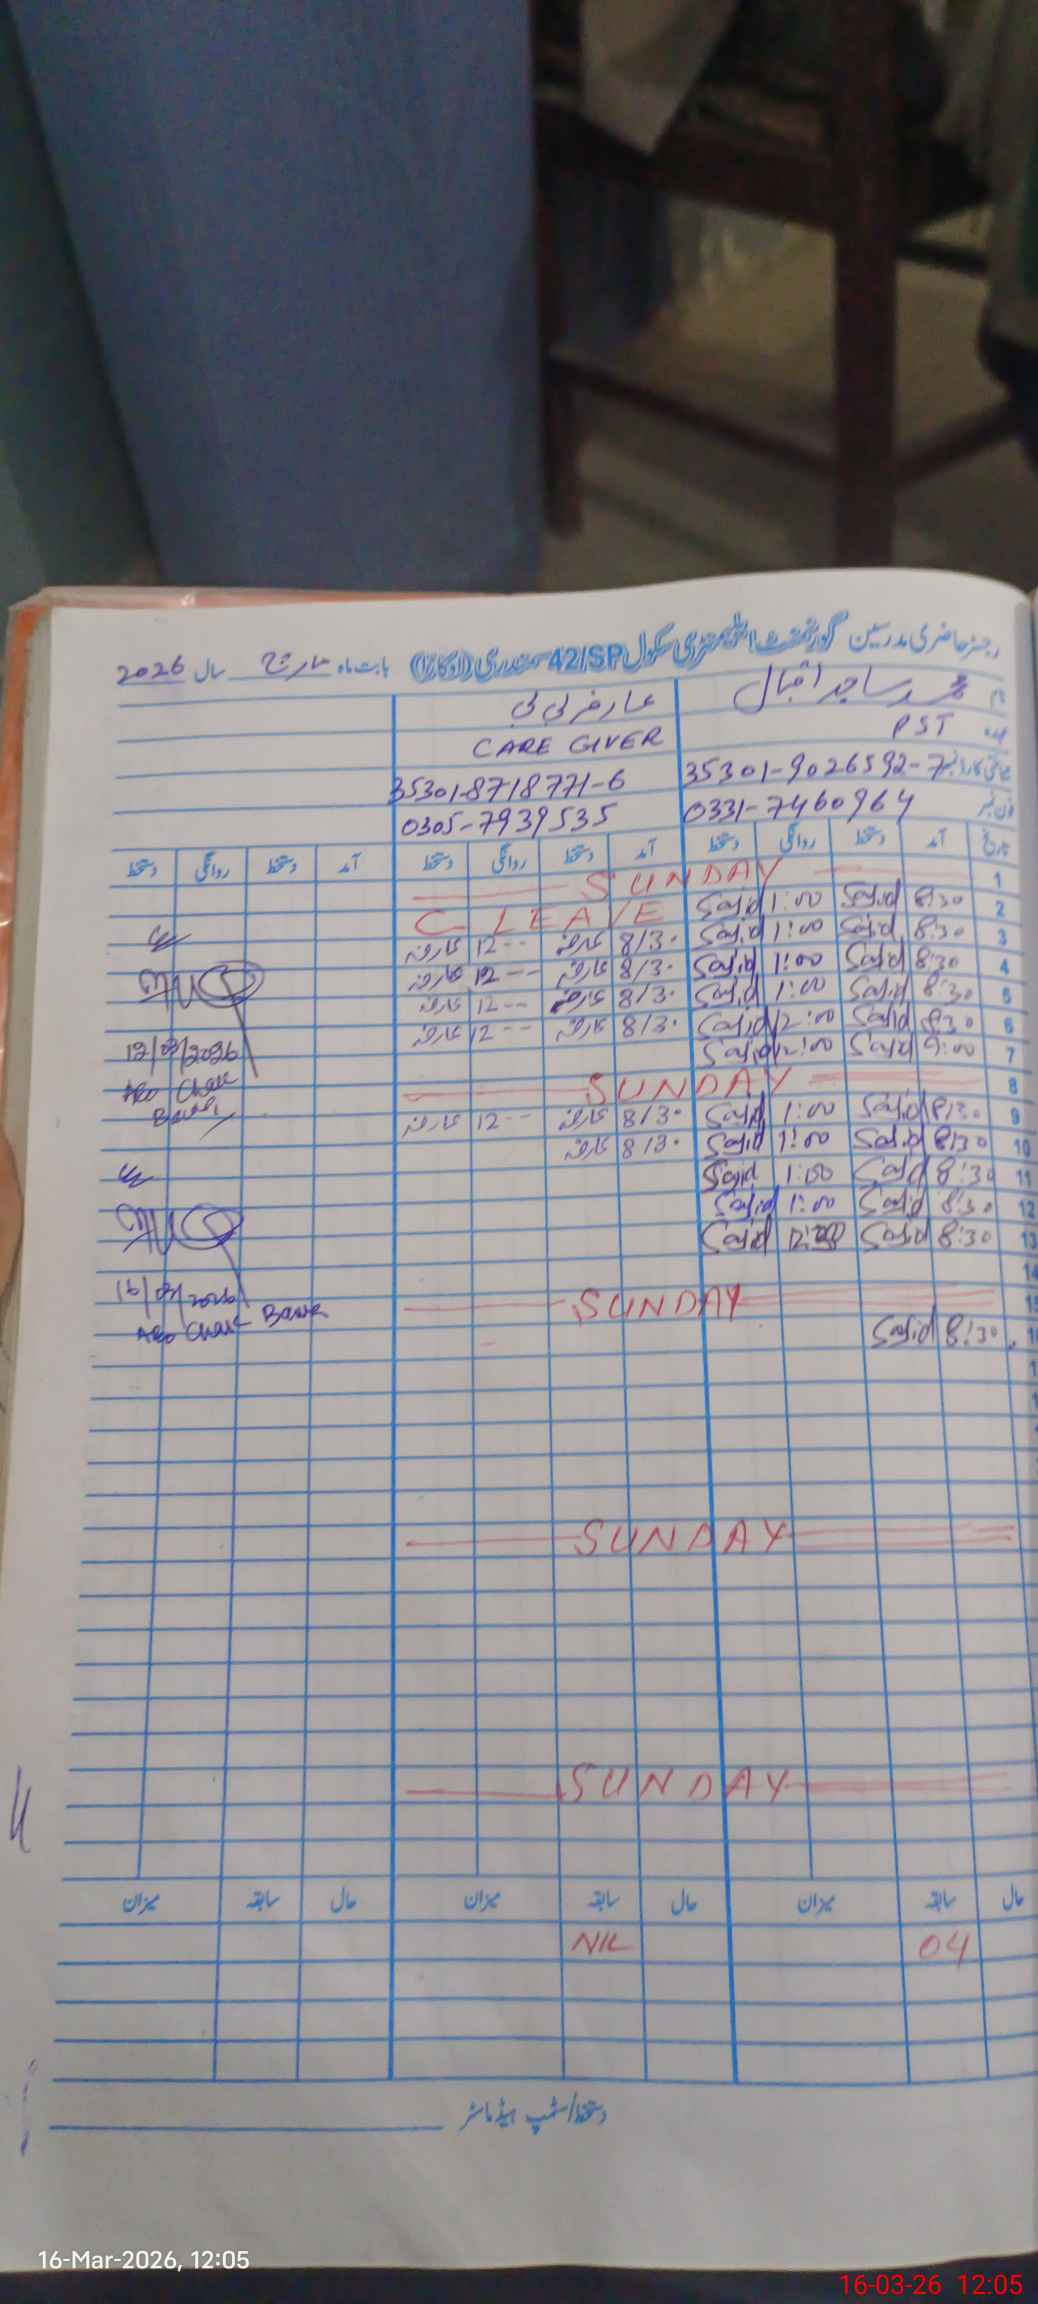 رجسٹر حاضری مدرسین گورنمنٹ ایلیمنٹری سکول 42/SP سمندری (اوکاڑا) بابت ماہ مارچ سال 2026
نام محمد ساجد اقبال عارفہ بی بی
عہدہ PST CARE GIVER
شناختی کارڈ نمبر 35301-9026592-7 35301-8718771-6
فون نمبر 0331-7460964 0305-7939535
تاریخ آمد دستخط روانگی دستخط آمد دستخط روانگی دستخط آمد دستخط روانگی دستخط
1 SUNDAY
2 8:30 Sajid 1:00 Sajid C LEAVE
3 8:30 Sajid 1:00 Sajid 8/30 عارفہ 12-- عارفہ
4 8:30 Sajid 1:00 Sajid 8/30 عارفہ 12-- عارفہ
5 8:30 Sajid 1:00 Sajid 8/30 عارفہ 12-- عارفہ
6 8:30 Sajid 12:00 Sajid 8/30 عارفہ 12-- عارفہ
7 9:00 Sajid 12:00 Sajid
12/03/2026
8 SUNDAY
AEO Chak
9 8:30 Sajid 1:00 Sajid 8/30 عارفہ 12-- عارفہ
10 8:30 Sajid 1:00 Sajid 8/30 عارفہ
11 8:30 Sajid 1:00 Sajid
12 8:30 Sajid 1:00 Sajid
13 8:30 Sajid Sajid
14
15 SUNDAY
16/03/2026
AEO Chak
8:30 Sajid
SUNDAY
SUNDAY
حال سابقہ میزان حال سابقہ میزان حال سابقہ میزان
04 NIL
دستخط/سٹمپ ہیڈ ماسٹر
16-Mar-2026, 12:05
16-03-26 12:05